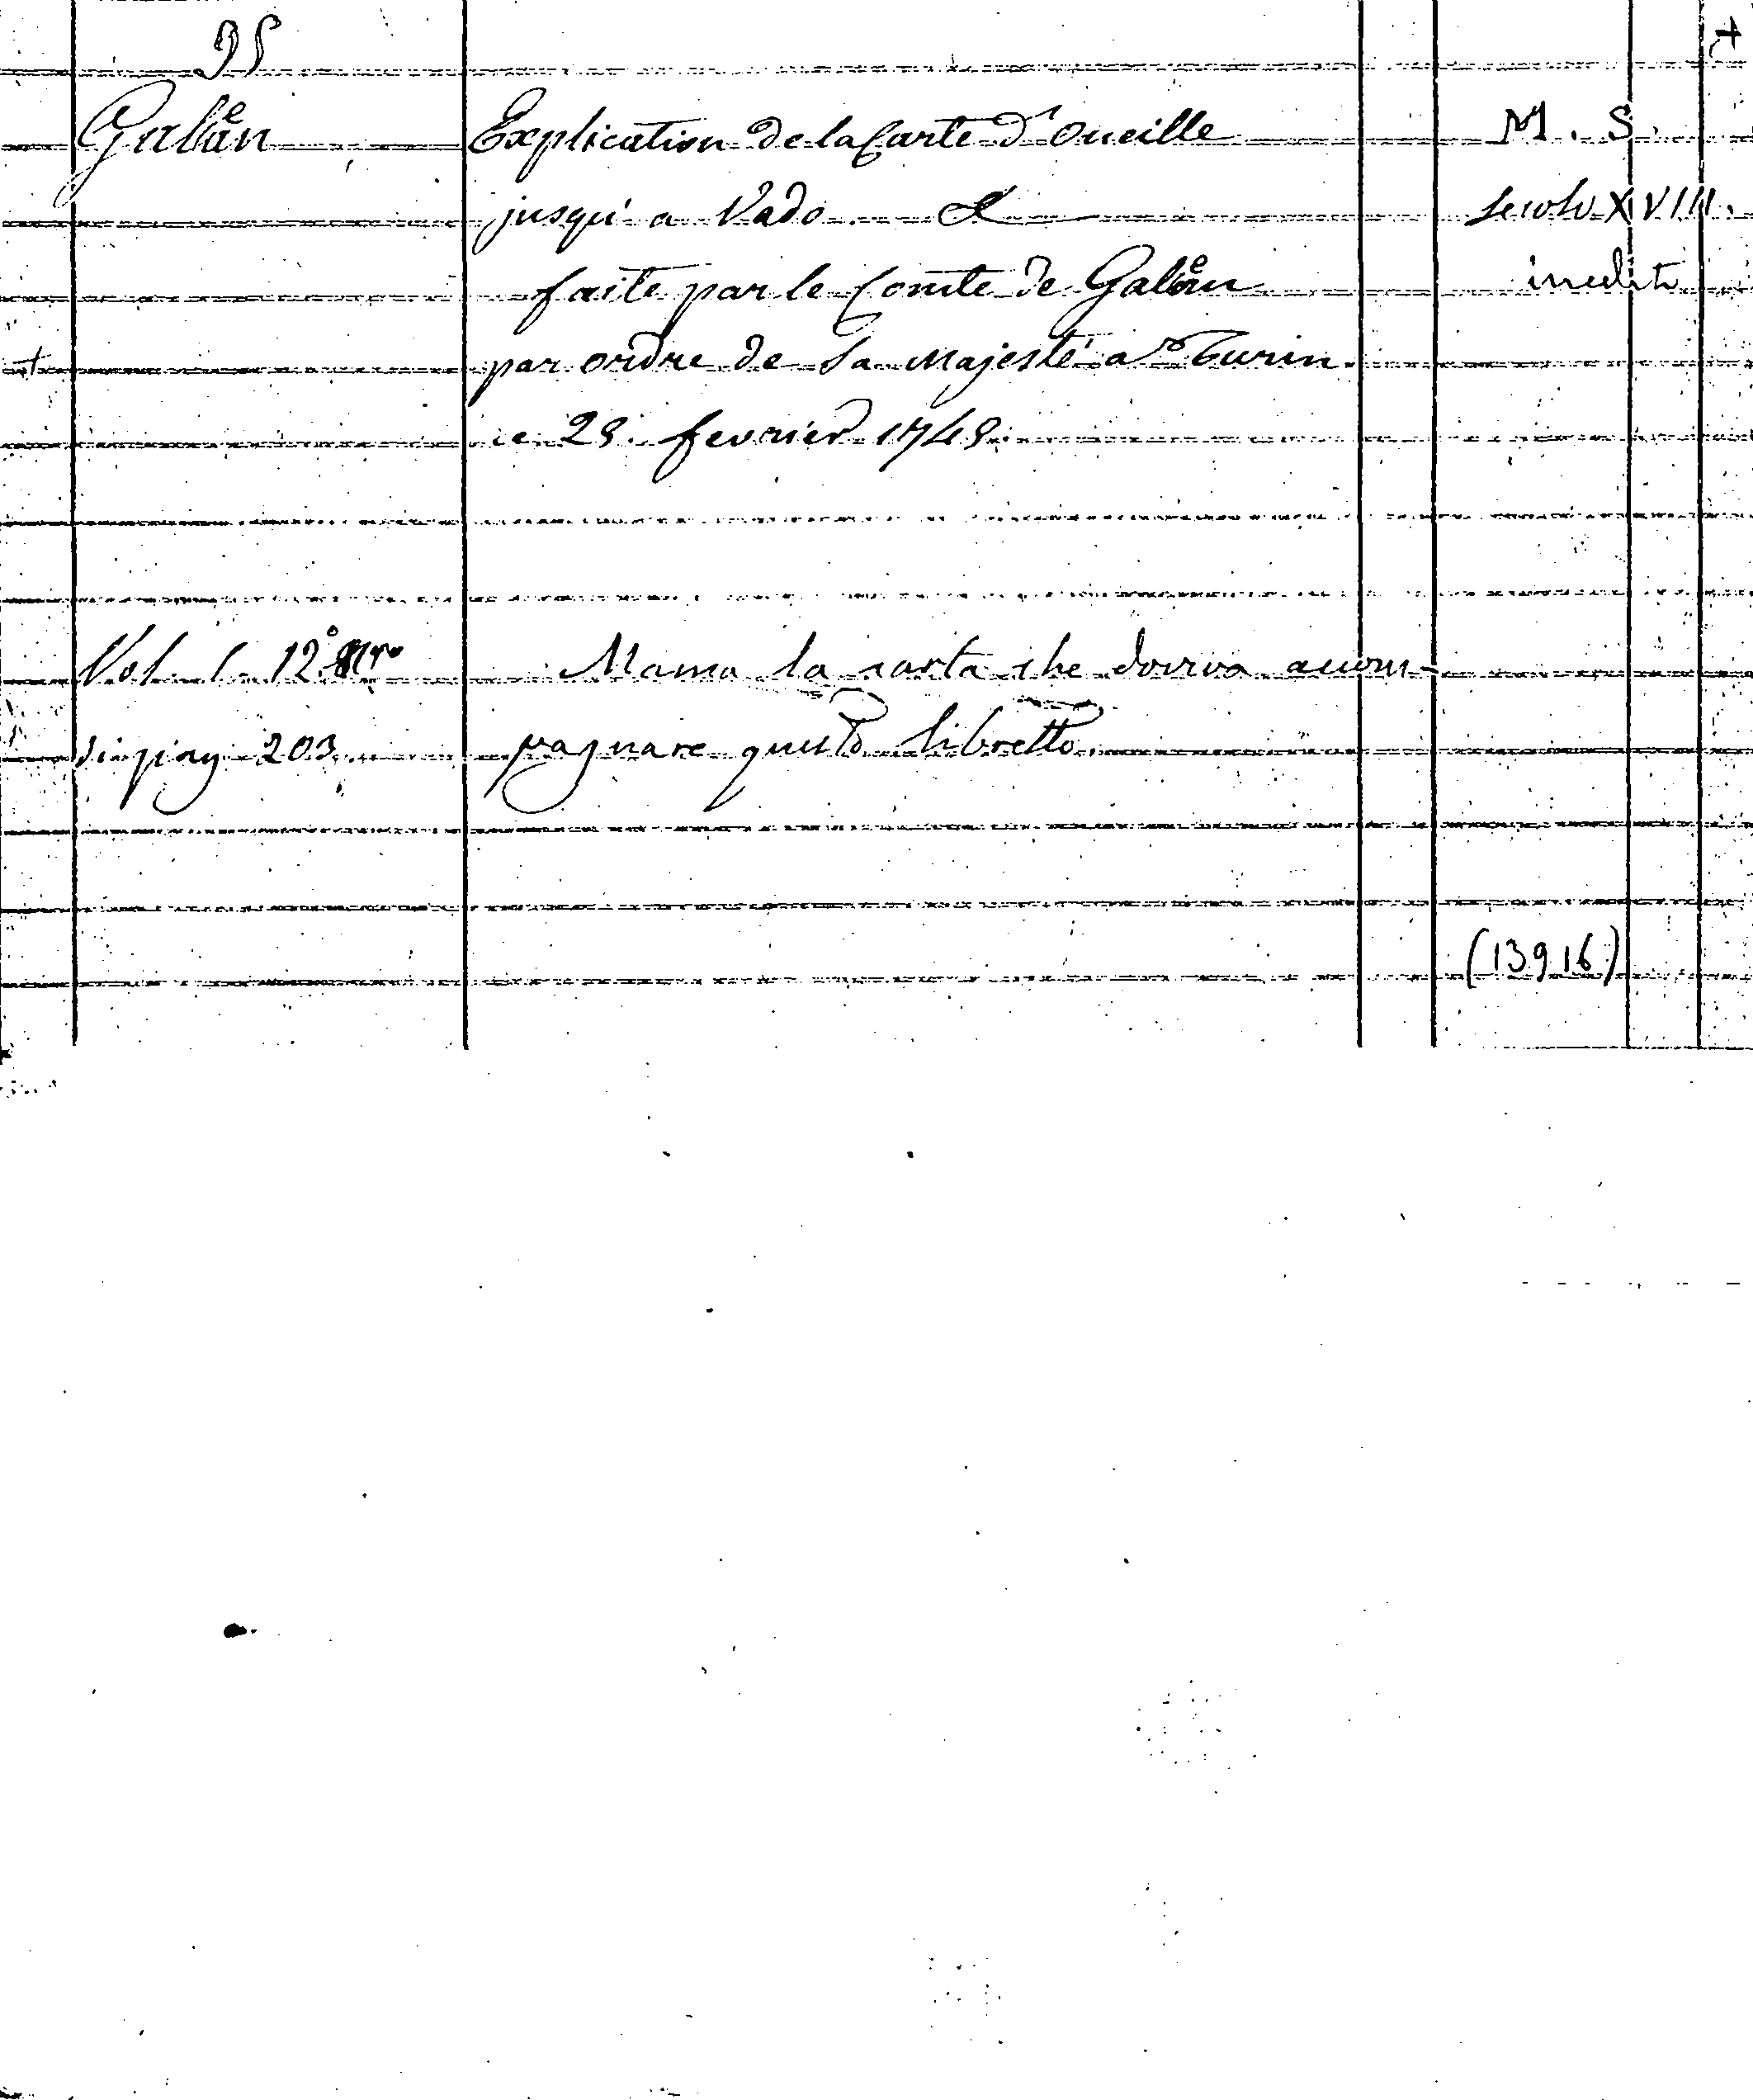 95
Galëan
Explication de la Carte d'Oneille
M. S.
jusqu'a Vado &
Secolo XVIII.
faite par le Comte de Galëan
inedito
par ordre de Sa Majesté a Turin
ce 28. fevrier 1748.
Vol. 1. 12°
Manca la carta che doveva accom-
di pag 203
pagnare questo libretto.
(13916)